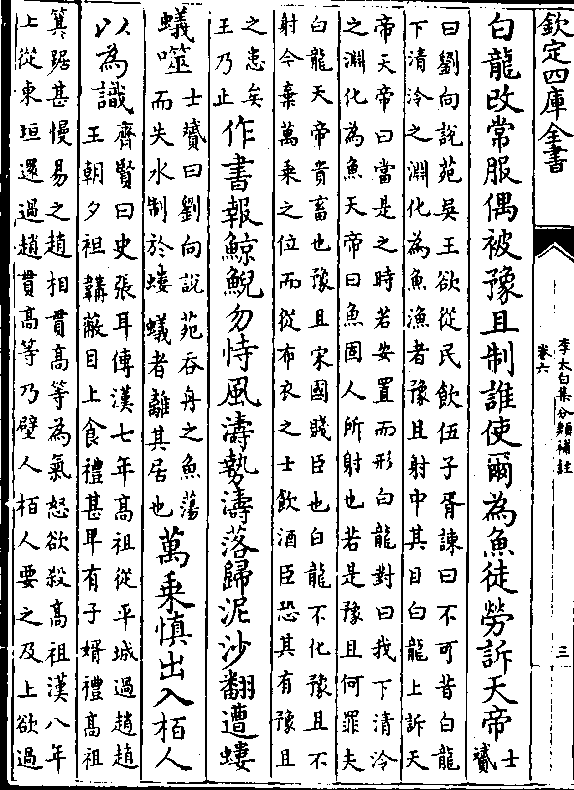 欽定四庫全書
李太白集分類補註
卷六
三
白龍改常服偶被豫且制誰使爾為魚徒勞訴天帝
士贇
曰劉向說苑吳王欲從民飲伍子胥諫曰不可昔白龍
下清泠之淵化為魚漁者豫且射中其目白龍上訴天
帝天帝曰當是之時若安置而形白龍對曰我下清泠
之淵化為魚天帝曰魚固人所射也若是豫且何罪夫
白龍天帝貴畜也豫且宋國賤臣也白龍不化豫且不
射今棄萬乘之位而從布衣之士飲酒臣恐其有豫且
之患矣
王乃止
作書報鯨鯢勿恃風濤勢濤落歸泥沙翻遭螻
蟻噬
士贇曰劉向說苑吞舟之魚蕩
而失水制於螻蟻者離其居也
萬乘慎出入栢人
以為識
齊賢曰史張耳傳漢七年高祖從平城過趙趙
王朝夕祖韝蔽目上食禮甚卑有子婿禮高祖
箕踞甚慢易之趙相貫高等為氣怒欲殺高祖漢八年
上從東垣還過趙貫高等乃壁人栢人要之及上欲過